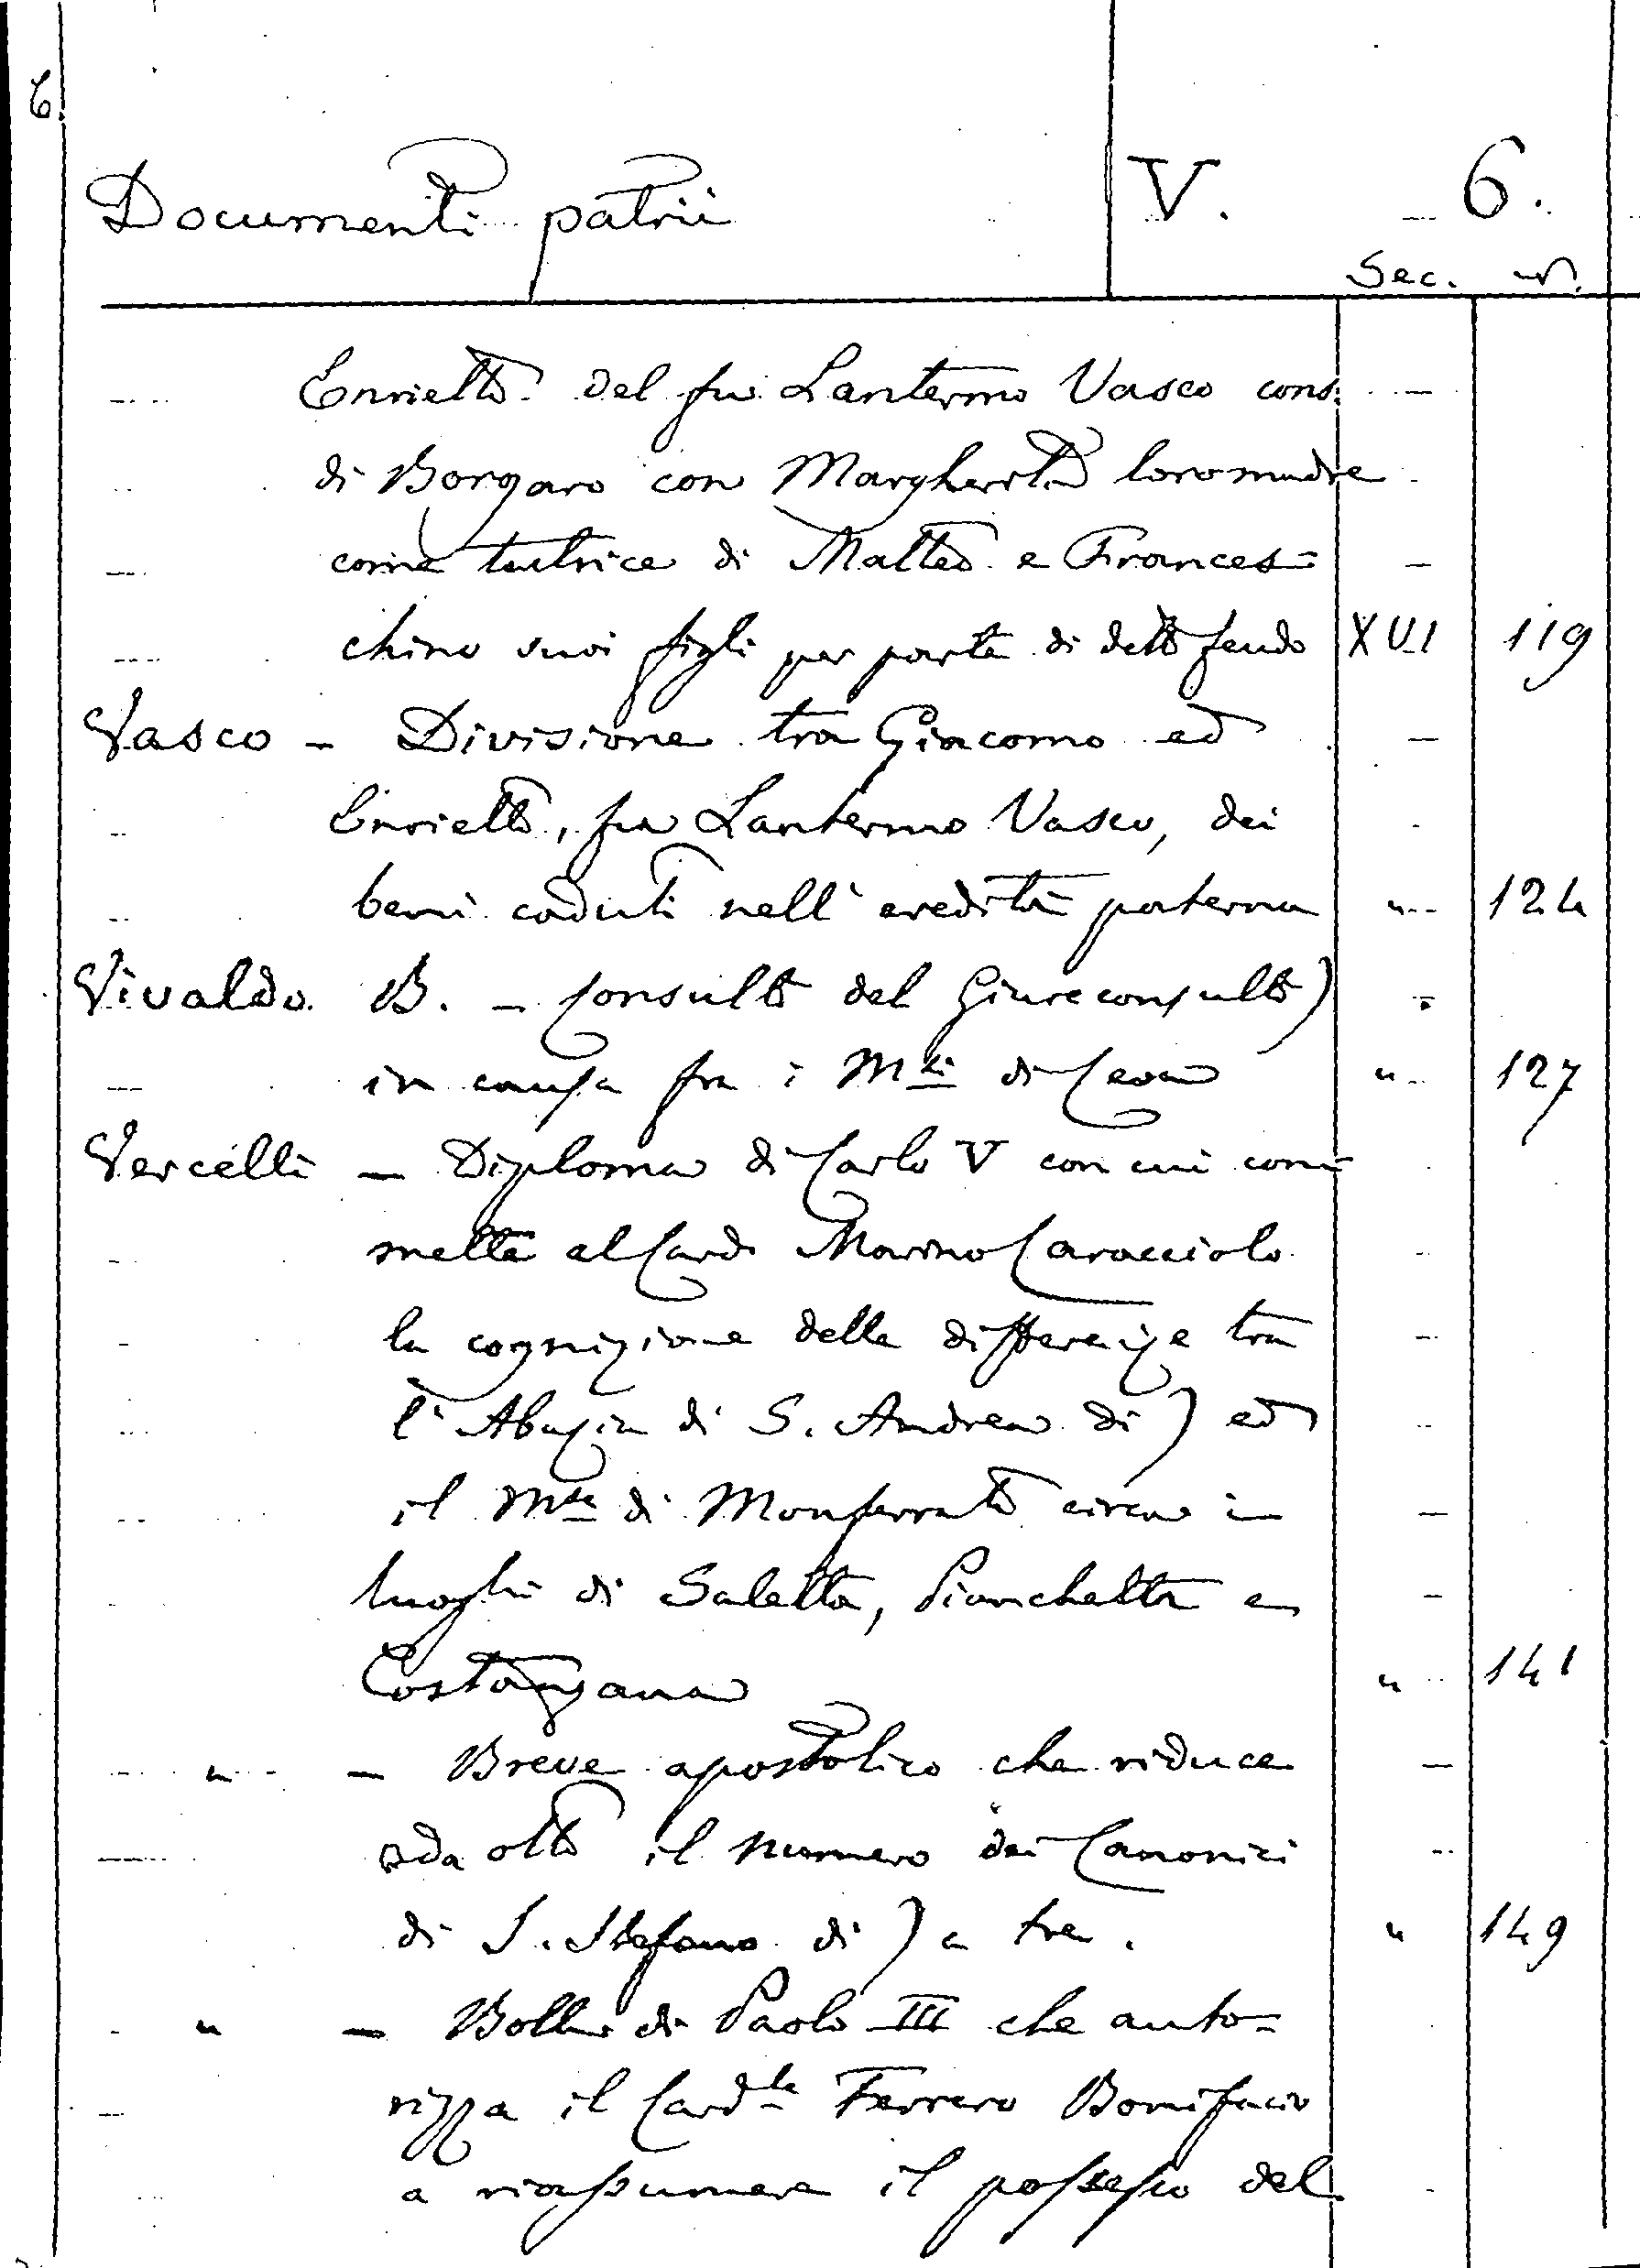 6.
Documenti patrii V. 6.
Sec. N.
Enrietto del fu Lantermo Vasco cons.
di Borgaro con Margherita loro madre
come tutrice di Matteo e Frances=
chino suoi figli per parte di detto feudo XVI 119
Vasco - Divisione tra Giacomo ed
Enrietto, fu Lantermo Vasco, dei
beni caduti nell'eredità paterna " 124
Vivaldo B. - Consulto del Giureconsulto)
in causa fra i Msi di Ceva " 127
Vercelli - Diploma di Carlo V con cui com=
mette al Card. Marino Caracciolo
la cognizione delle differenze tra
l'Abazia di S. Andrea di ) ed
il Mse di Monferrato circa i
luoghi di Saletta, Pianchetta e
Costanzana " 141
" - Breve apostolico che riduce
da otto il numero dei Canonici
di S. Stefano di ) a tre. " 149
" - Bolla di Paolo III che auto=
rizza il Cardle Ferrero Bonifacio
a riassumere il possesso del